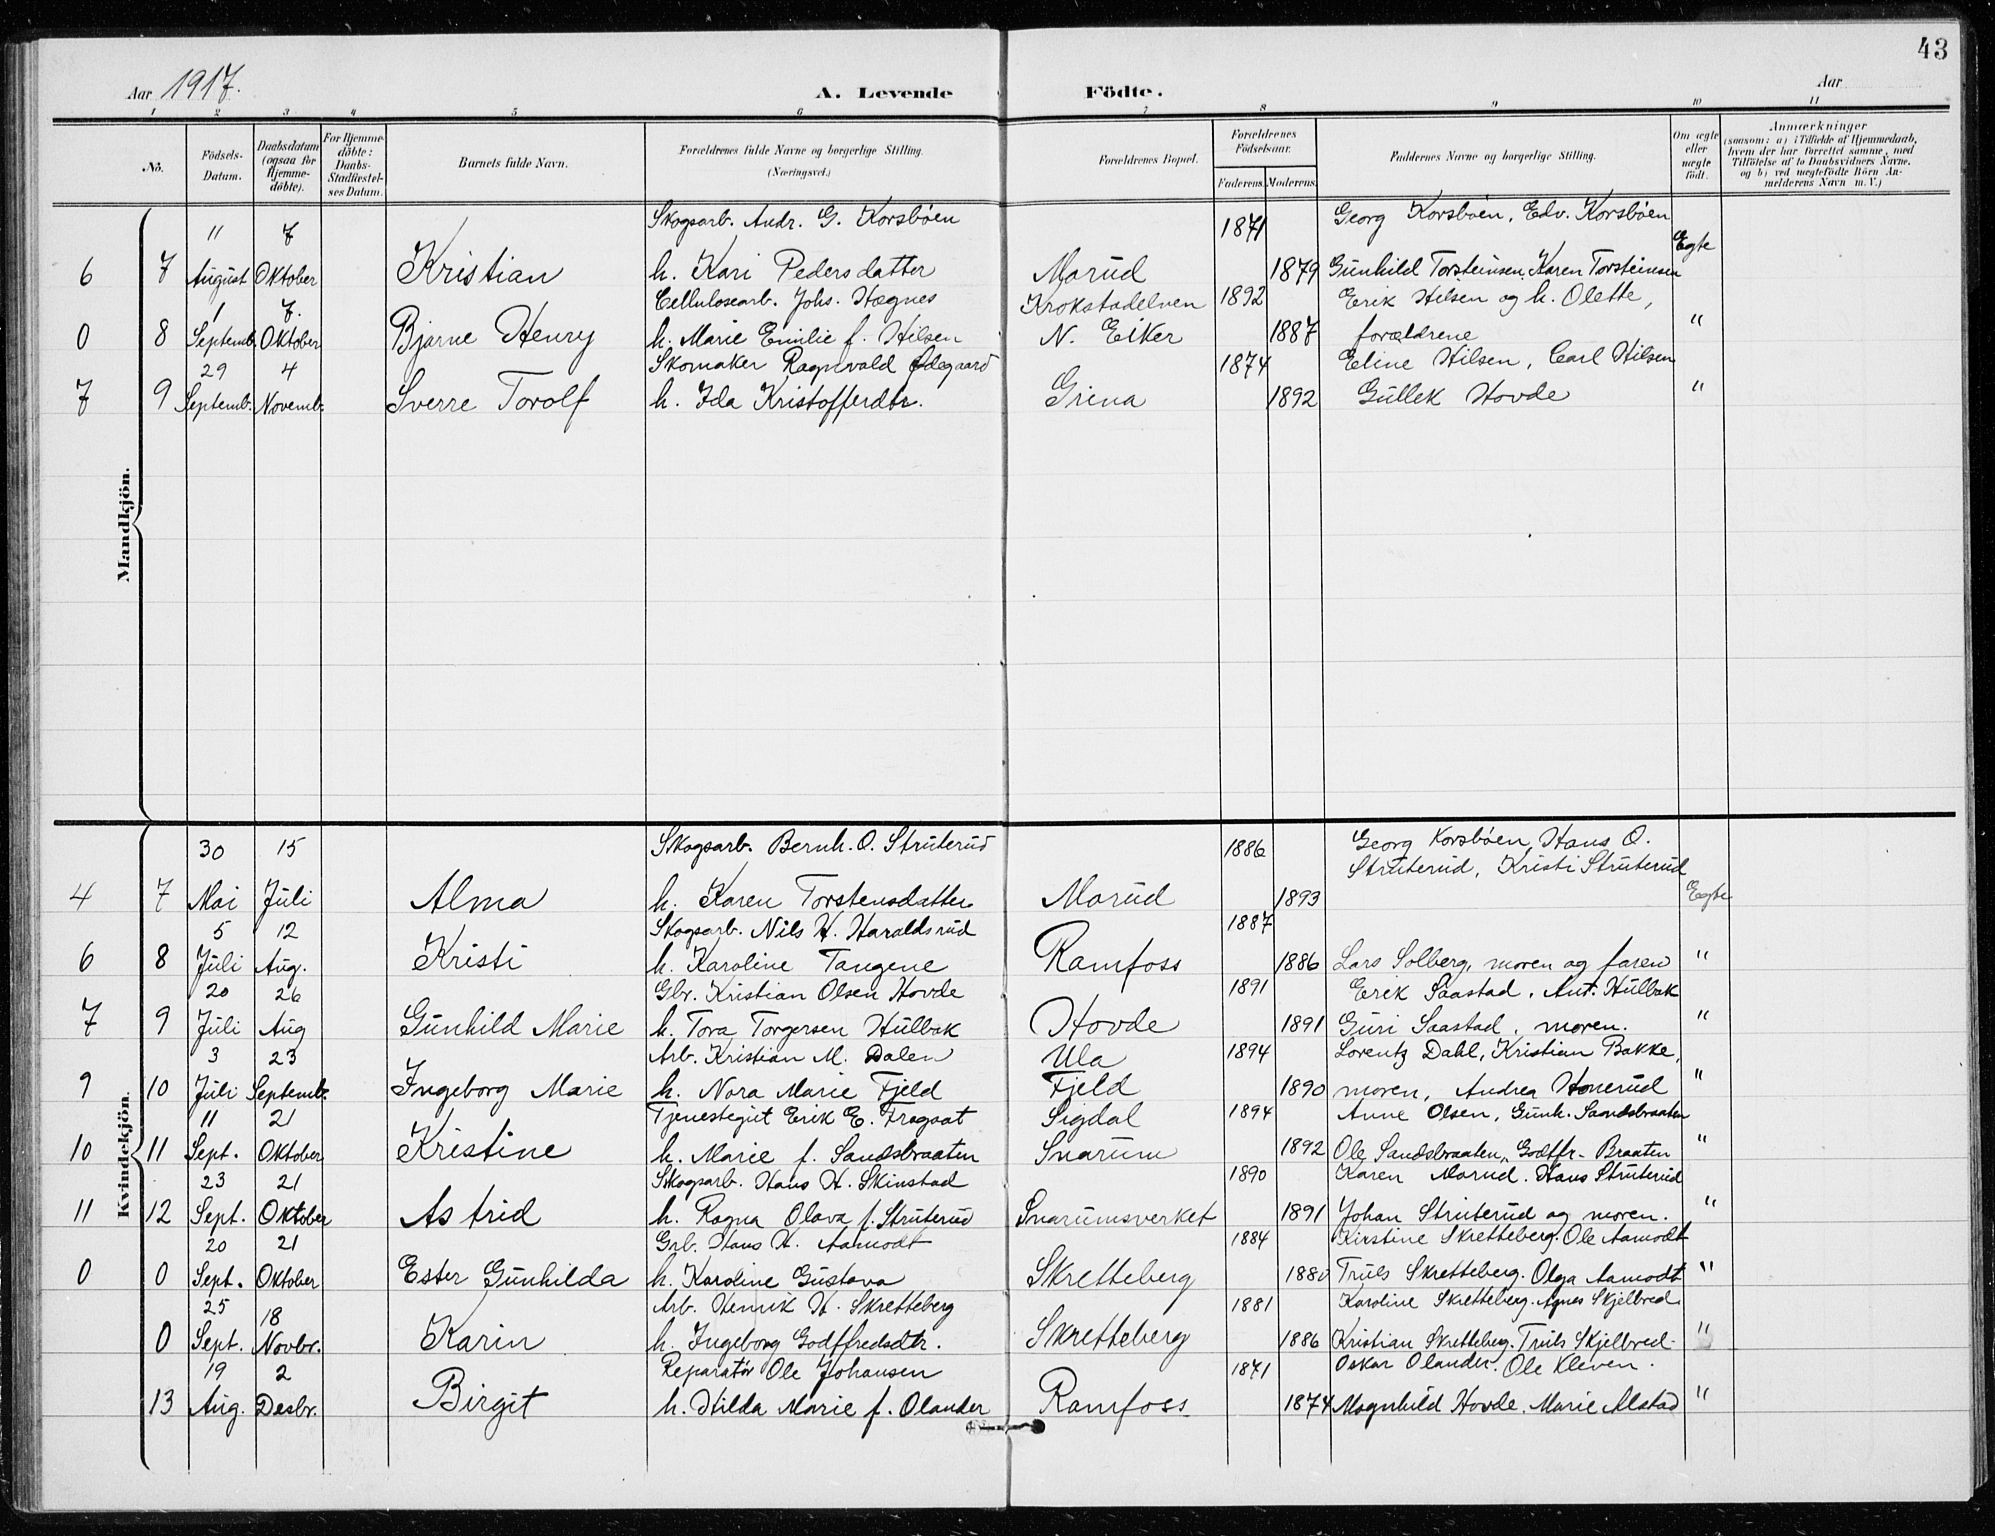 43
Aar 1917.
A. Levende Födte.
Aar
1 2 3 4 5 6 7 8 9 10 11
No.
Födsels-Datum.
Daabsdatum (ogsaa for Hjemme-döbte).
For Hjemme-döbte: Daabs-Stadfæstel-ses Datum.
Barnets fulde Navn.
Forældrenes fulde Navne og borgerlige Stilling. (Næringsvei.)
Forældrenes Bopæl.
Forældrenes Födselsaar.
Faderens. Moderens.
Faddernes Navne og borgerlige Stilling.
Om ægte eller uægte født.
Anmærkninger
(saasom: a) i Tilfælde af Hjemmedaab, hvem der har forrettet samme, med Tilföielse af to Daabsvidners Navne. og b) ved uægtefödte Börn An-melderens Navn m. V.)
Mandkjön.
11 7 Skogsarb. Andr. G. Korsbøen 1871 Georg Korsbøen, Edv. Korsbøen
6 7 August Oktober Kristian h. Kari Pedersdatter Morud 1879 Gunhild Torsteinsen, Karen Torsteinsen Egte
1 7. Cellulosearb. Johs. Hægnes Krokstadelven 1892 Erik Hilsen og h. Olette,
0 8 Septemb. Oktober Bjarne Henry h. Marie Emilie f. Hilsen N. Eiker 1887 forældrene "
29 4 Skomaker Ragnvald Ødegaard 1874 Eline Hilsen, Carl Hilsen
7 9 Septemb. Novemb. Sverre Torolf h. Ida Kristofferdtr. Grina 1892 Gullek Hovde "
Kvindekjön.
30 15 Skogsarb. Bernh. O. Struterud 1886 Georg Korsbøen, Hans O.
Struterud, Kristi Struterud
4 7 Mai Juli Alma h. Karen Torstensdatter Morud 1893 Egte
5 12 Skogsarb. Nils H. Haraldsrud 1887
6 8 Juli Aug. Kristi h. Karoline Tangene Ramfoss 1886 Lars Solberg, moren og faren "
20 26 Gbr. Kristian Olsen Hovde 1891 Erik Saastad, Ant. Hulbak
7 9 Juli Aug Gunhild Marie h. Tora Torgersen Hulbak Hovde 1891 Guri Saastad, moren. "
3 23 Arb. Kristian M. Dalen Ula 1894 Lorentz Dahl, Kristian Bakke,
9 10 Juli Septemb. Ingeborg Marie h. Nora Marie Fjeld Fjeld 1890 moren, Andrea Honerud "
11 21 Tjenestegut Erik E. Fragaat Sigdal 1894 Anne Olsen, Gunh. Sandsbraaten
10 11 Sept. Oktober Kristine h. Marie f. Sandsbraaten Snarum 1892 Ole Sandsbraaten, Godffr. Braaten "
23 21 Skogsarb. Hans H. Skinstad 1890 Karen Morud. Hans Struterud
11 12 Sept. Oktober Astrid h. Ragna Olava f. Struterud Snarumsverket 1891 Johan Struterud og moren. "
20 21 Grb. Hans H. Aamodt 1884 Kirstine Skretteberg. Ole Aamodt
0 0 Sept. Oktober Ester Gunhilda h. Karoline Gustava Skretteberg 1880 Truls Skretteberg. Olga Aamodt "
25 18 Arb. Henrik H. Skretteberg 1881 Karoline Skretteberg. Agnes Skjelbred.
0 Sept. Novbr. Karin h. Ingeborg Godffredsdtr. Skretteberg 1886 Kristian Skretteberg. Truls Skjelbred. "
19 2 Reparatør Ole Johansen 1871 Oskar Olander. Ole Kleven.
13 Aug. Desbr. Birgit h. Hilda Marie f. Olander Ramfoss 1874 Magnhild Hovde. Marie Alstad "